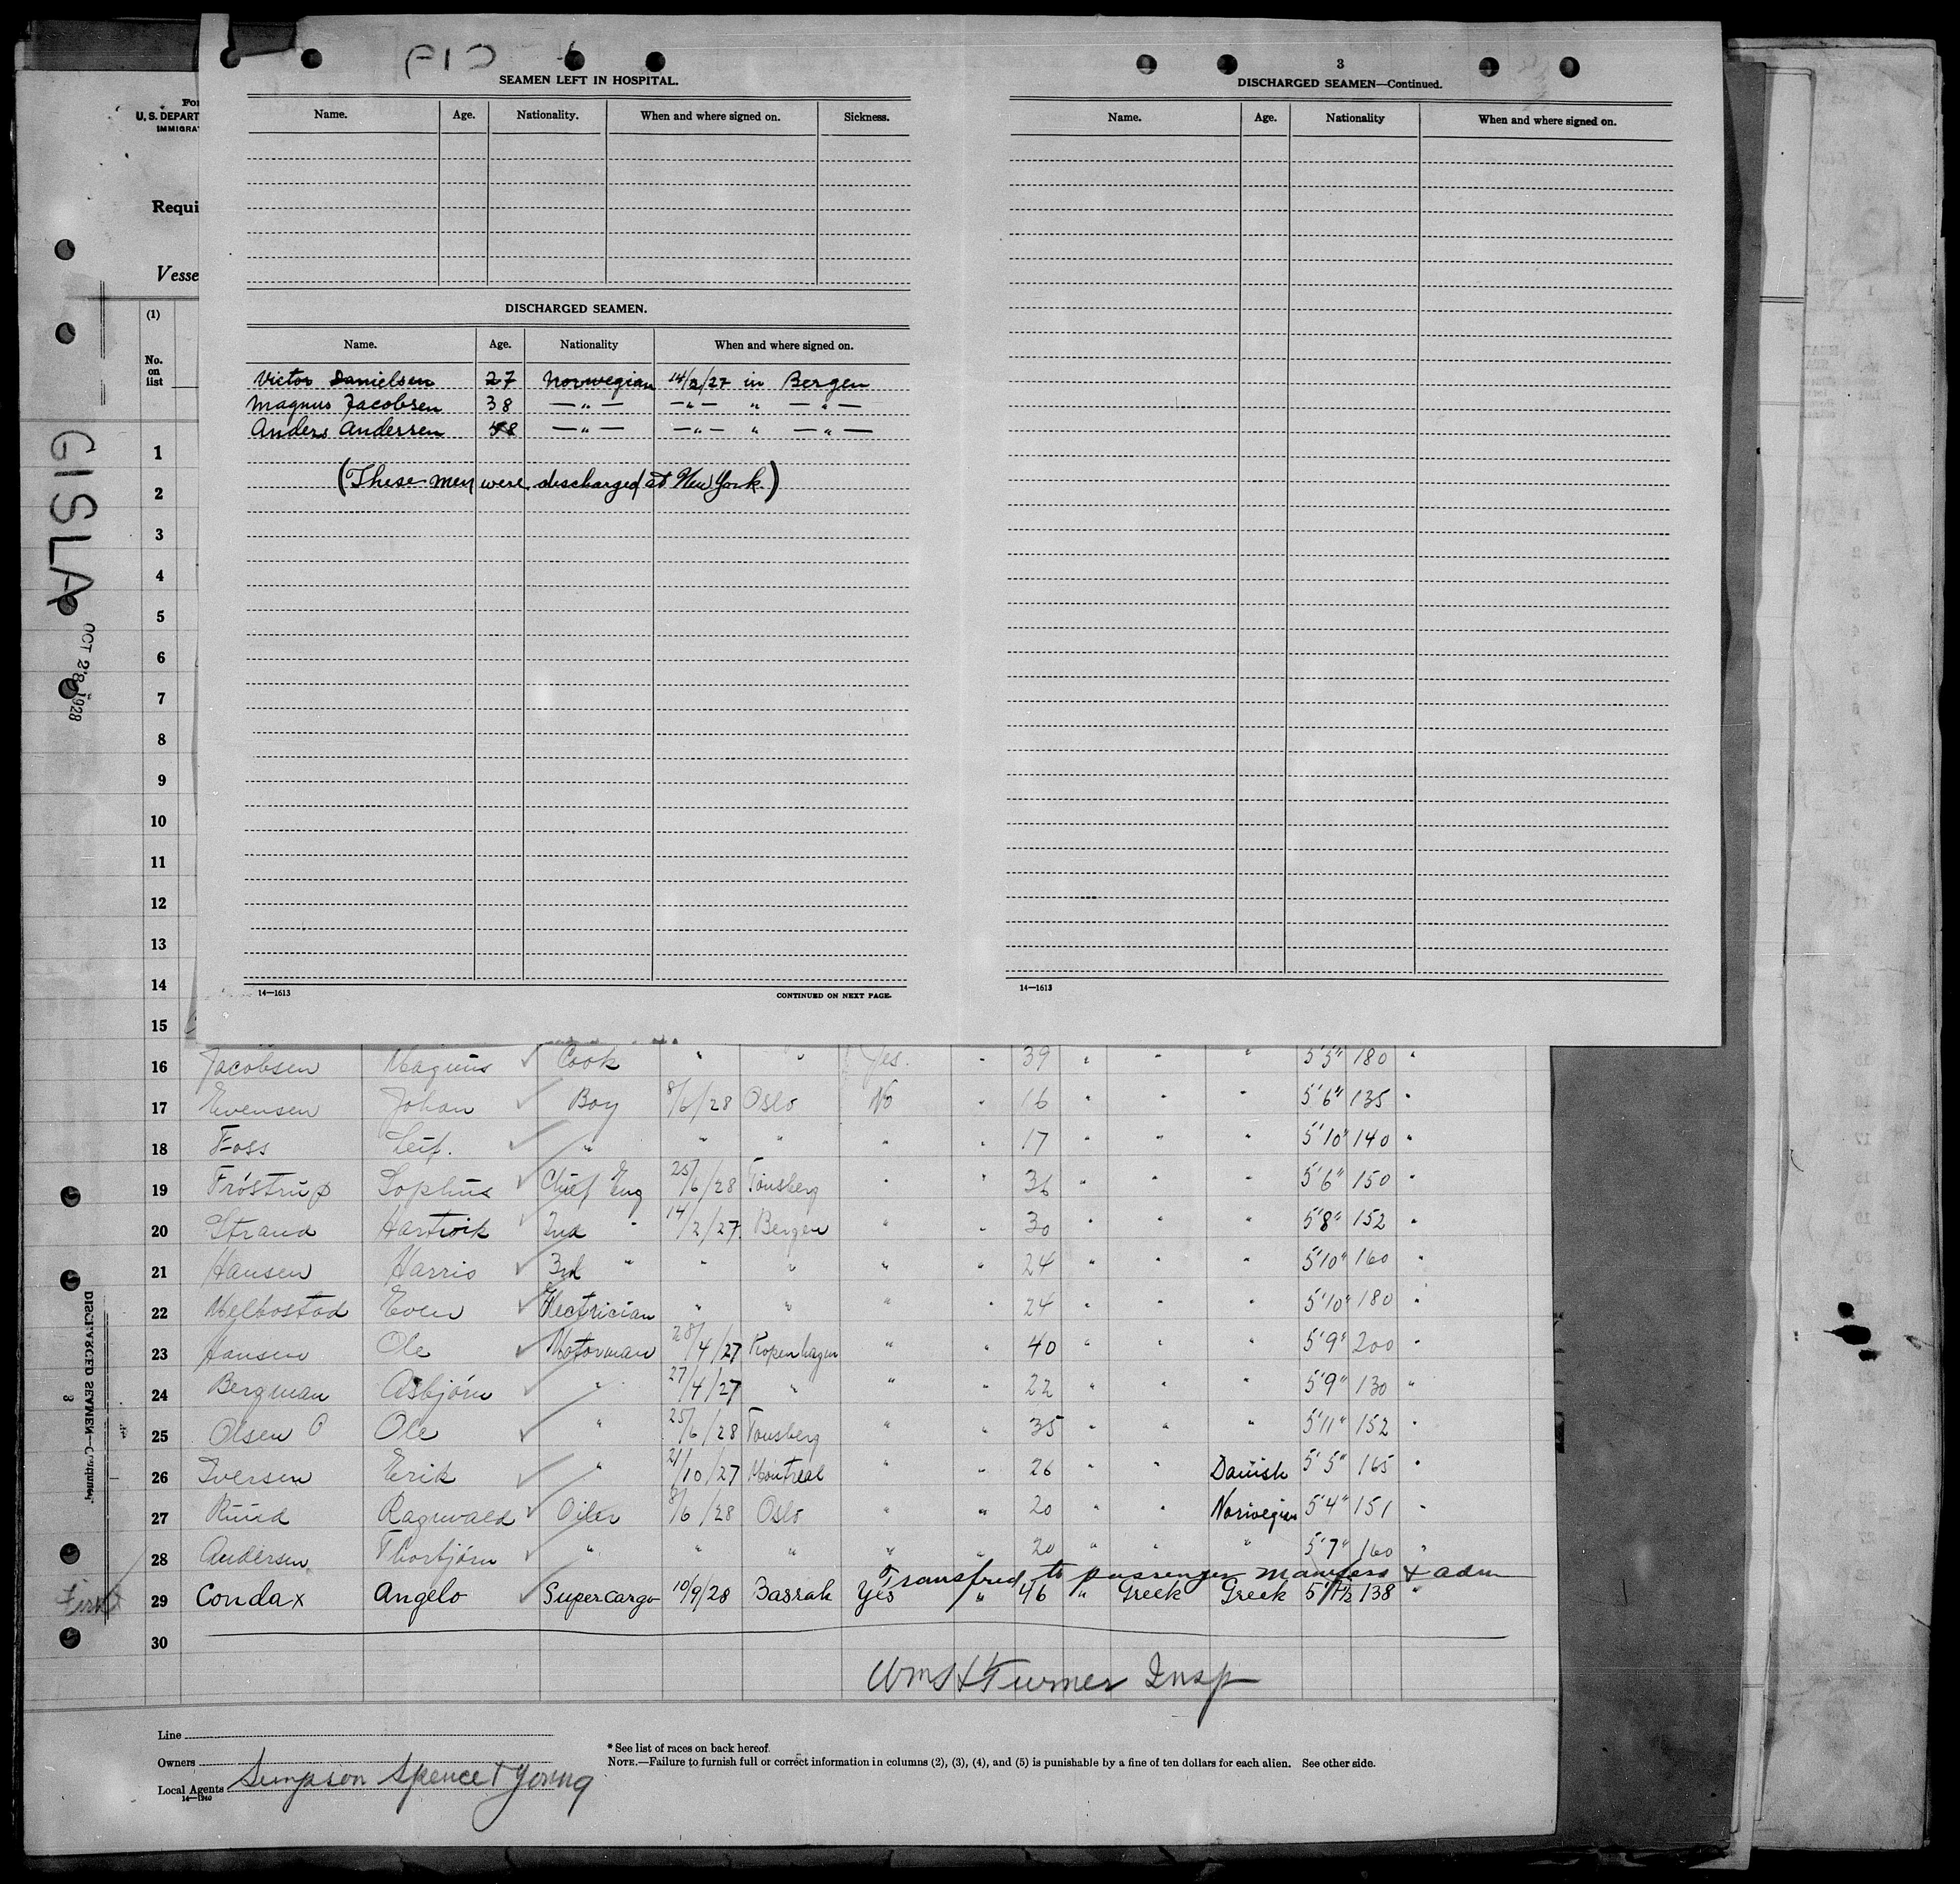 SEAMEN LEFT IN HOSPITAL.
Name. Age. Nationality. When and where signed on. Sickness.
DISCHARGED SEAMEN.
Name. Age. Nationality When and where signed on.
Victor Danielsen 27 Norwegian 14/2/27 in Bergen
Magnus Jacobsen 38 —"— —"— " —"—
Anders Andersen —"— —"— " —"—
(These men were discharged at New York.)
14—1613
CONTINUED ON NEXT PAGE.
3
DISCHARGED SEAMEN—Continued.
Name. Age. Nationality When and where signed on.
14—1613
U. S. DEPART
IMMIGRA
Requi
Vesse
(1)
No.
on
list
GISLA
OCT 28 1928
1
2
3
4
5
6
7
8
9
10
11
12
13
14
15
16 Jacobsen Magnus Cook " " Yes. " 39 " " " 5'5" 180 "
17 Evensen Johan Boy 8/6/28 Oslo No " 16 " " " 5'6" 135 "
18 Foss Leif. " " " " " 17 " " " 5'10" 140 "
19 Fröstrup Sophus Chief Eng 25/6/28 Tönsberg " " 36 " " " 5'6" 150 "
20 Strand Hartvik 2nd " 14/2/27 Bergen " " 30 " " " 5'8" 152 "
21 Hansen Harris 3rd " " " " " 24 " " " 5'10" 160 "
22 Melbostad Even Electrician " " " " 24 " " " 5'10" 180 "
23 Hansen Ole Motorman 28/4/27 Kopenhagen " " 40 " " " 5'9" 200 "
24 Bergman Asbjörn " 27/4/27 " " " 22 " " " 5'9" 130 "
25 Olsen O Ole " 25/6/28 Tönsberg " " 35 " " " 5'11" 152 "
26 Iversen Erik " 21/10/27 Montreal " " 26 " " Danish 5'5" 165 "
27 Ruud Ragnvald Oiler 8/6/28 Oslo " " 20 " " Norwegian 5'4" 151 "
28 Andersen Thorbjörn " " " " " 20 " " " 5'7" 160 "
Transfred to passenger manifest & adm
29 Condax Angelo Supercargo 10/9/28 Basrah Yes " 46 " Greek Greek 138 "
30
Wm H Turner Insp
Line
Owners
Local Agents Simpson Spence & Young
14—1940
* See list of races on back hereof.
NOTE.—Failure to furnish full or correct information in columns (2), (3), (4), and (5) is punishable by a fine of ten dollars for each alien. See other side.
DISCHARGED SEAMEN—Continued.
3